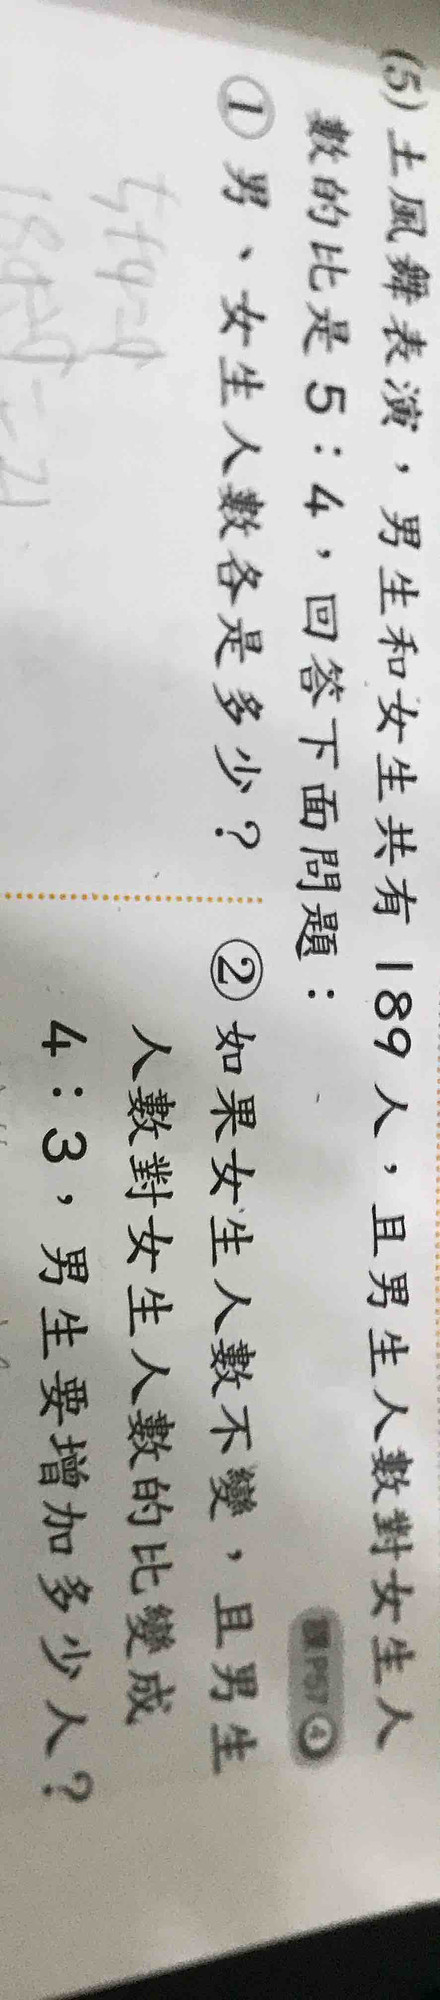 (5) 土風舞表演，男生和女生共有 189 人，且男生人數對女生人
數的比是 5：4，回答下面問題：
課P57 ④
① 男、女生人數各是多少？
5+4=9
189÷9=21
② 如果女生人數不變，且男生
人數對女生人數的比變成
4：3，男生要增加多少人？